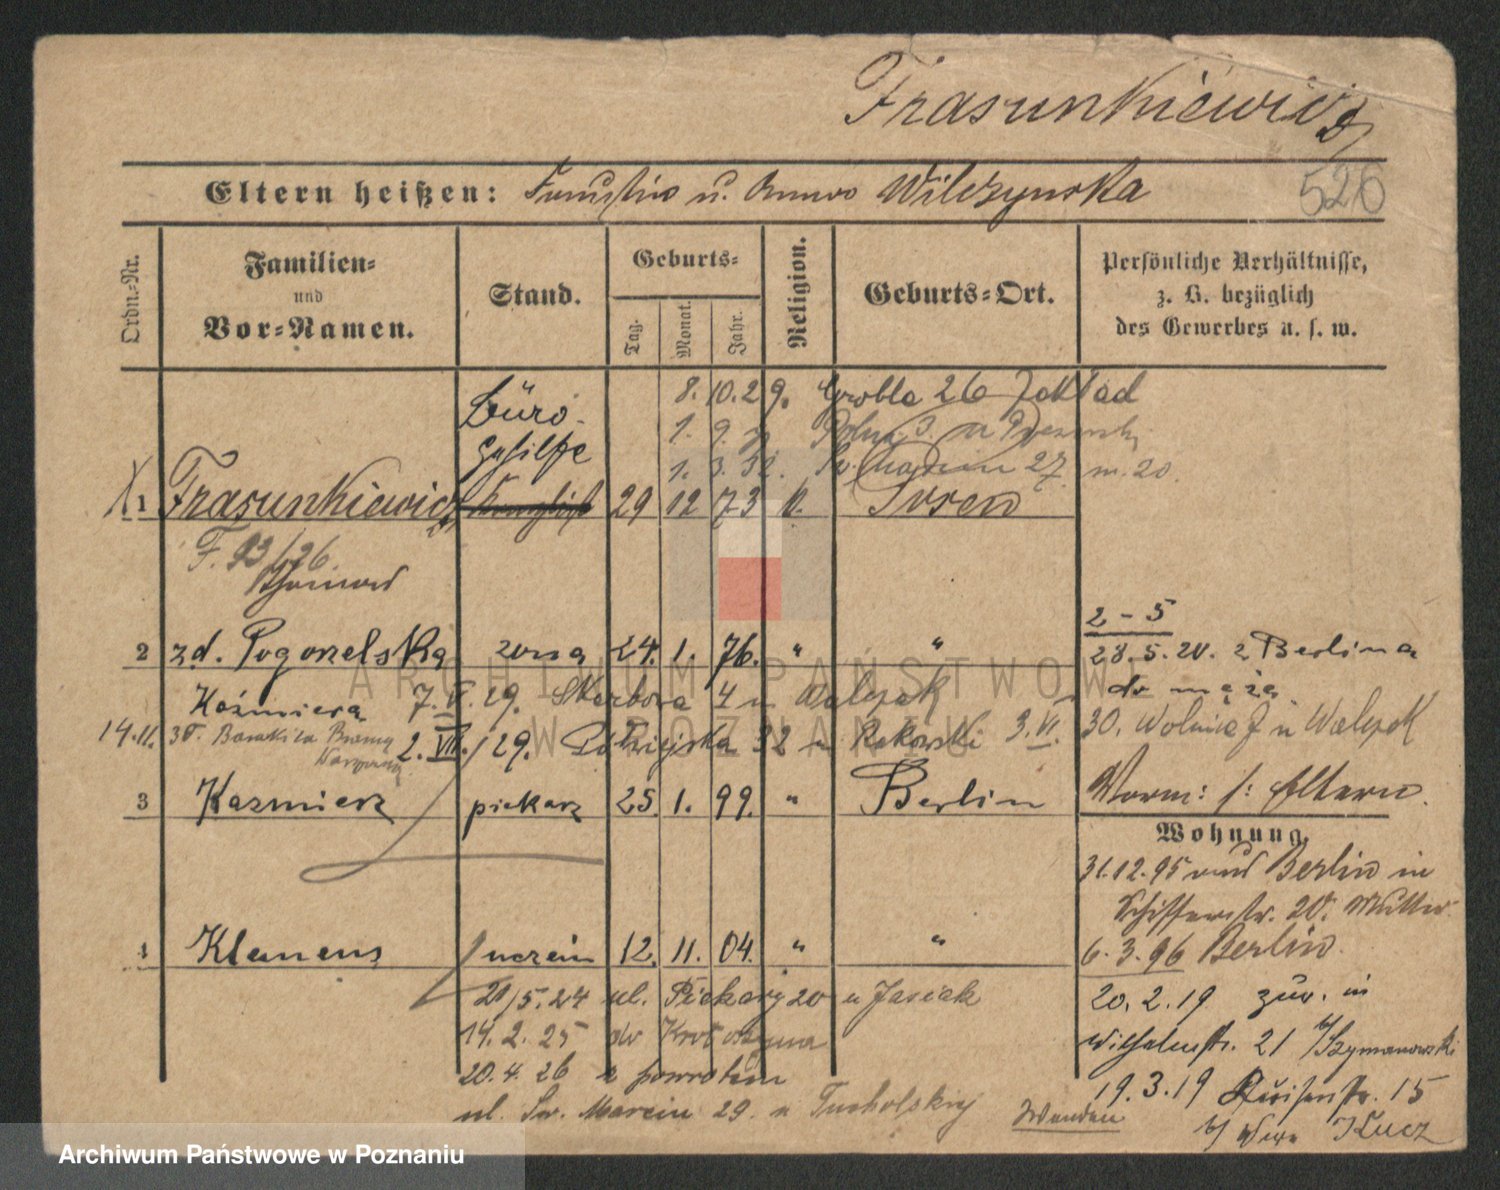 Frasunkiewicz
526
Eltern heißen: Faustin u. Anna Wilczynska
Ordn.-Nr.
Familien-
und
Vor-Namen.
Stand.
Geburts-
Tag.
Monat.
Jahr.
Religion.
Geburts-Ort.
Persönliche Verhältnisse,
z. B. bezüglich
des Gewerbes u. s. w.
Büro-
gehilfe
8. 10. 29. Grobla 26 Zakład
1. 9.
1. 3. 32. 27 m. 20
1 Frasunkiewicz 29 12 73 k. Posen
F. 93/26
2 zd. Pogorzelska żona 24. 1. 76. " "
2-5
28. 5. 20. z Berlina
do męża
Kaźmiera 7. V. 29. Skarbowa 4 u Walczak
14. 11. 30. 2. VII. /29. 32 u Rakowski 3. VI. 30. Wolnica u Walczak
3 Kazmierz piekarz 25. 1. 99. " Berlin
Vorm: s: Eltern.
Wohnung.
31.12.95 nach Berlin in
Schifferstr. 20. Mutter
4 Klemens uczeń 12. 11. 04. " "
6. 3. 96 Berlin.
20/5. 24 ul. Piekary 20 u Jasiak
20. 2. 19 zur. in
14. 2. 25 do Krotoszyna
Wilhelmstr. 21 b/Szymanowski
20. 4. 26 z powrotem
19. 3. 19 15
ul. Św. Marcin 29. u Tucholskiej
b/ Kucz
ARCHIWUM PAŃSTWOW
W POZNANIU
Archiwum Państwowe w Poznaniu